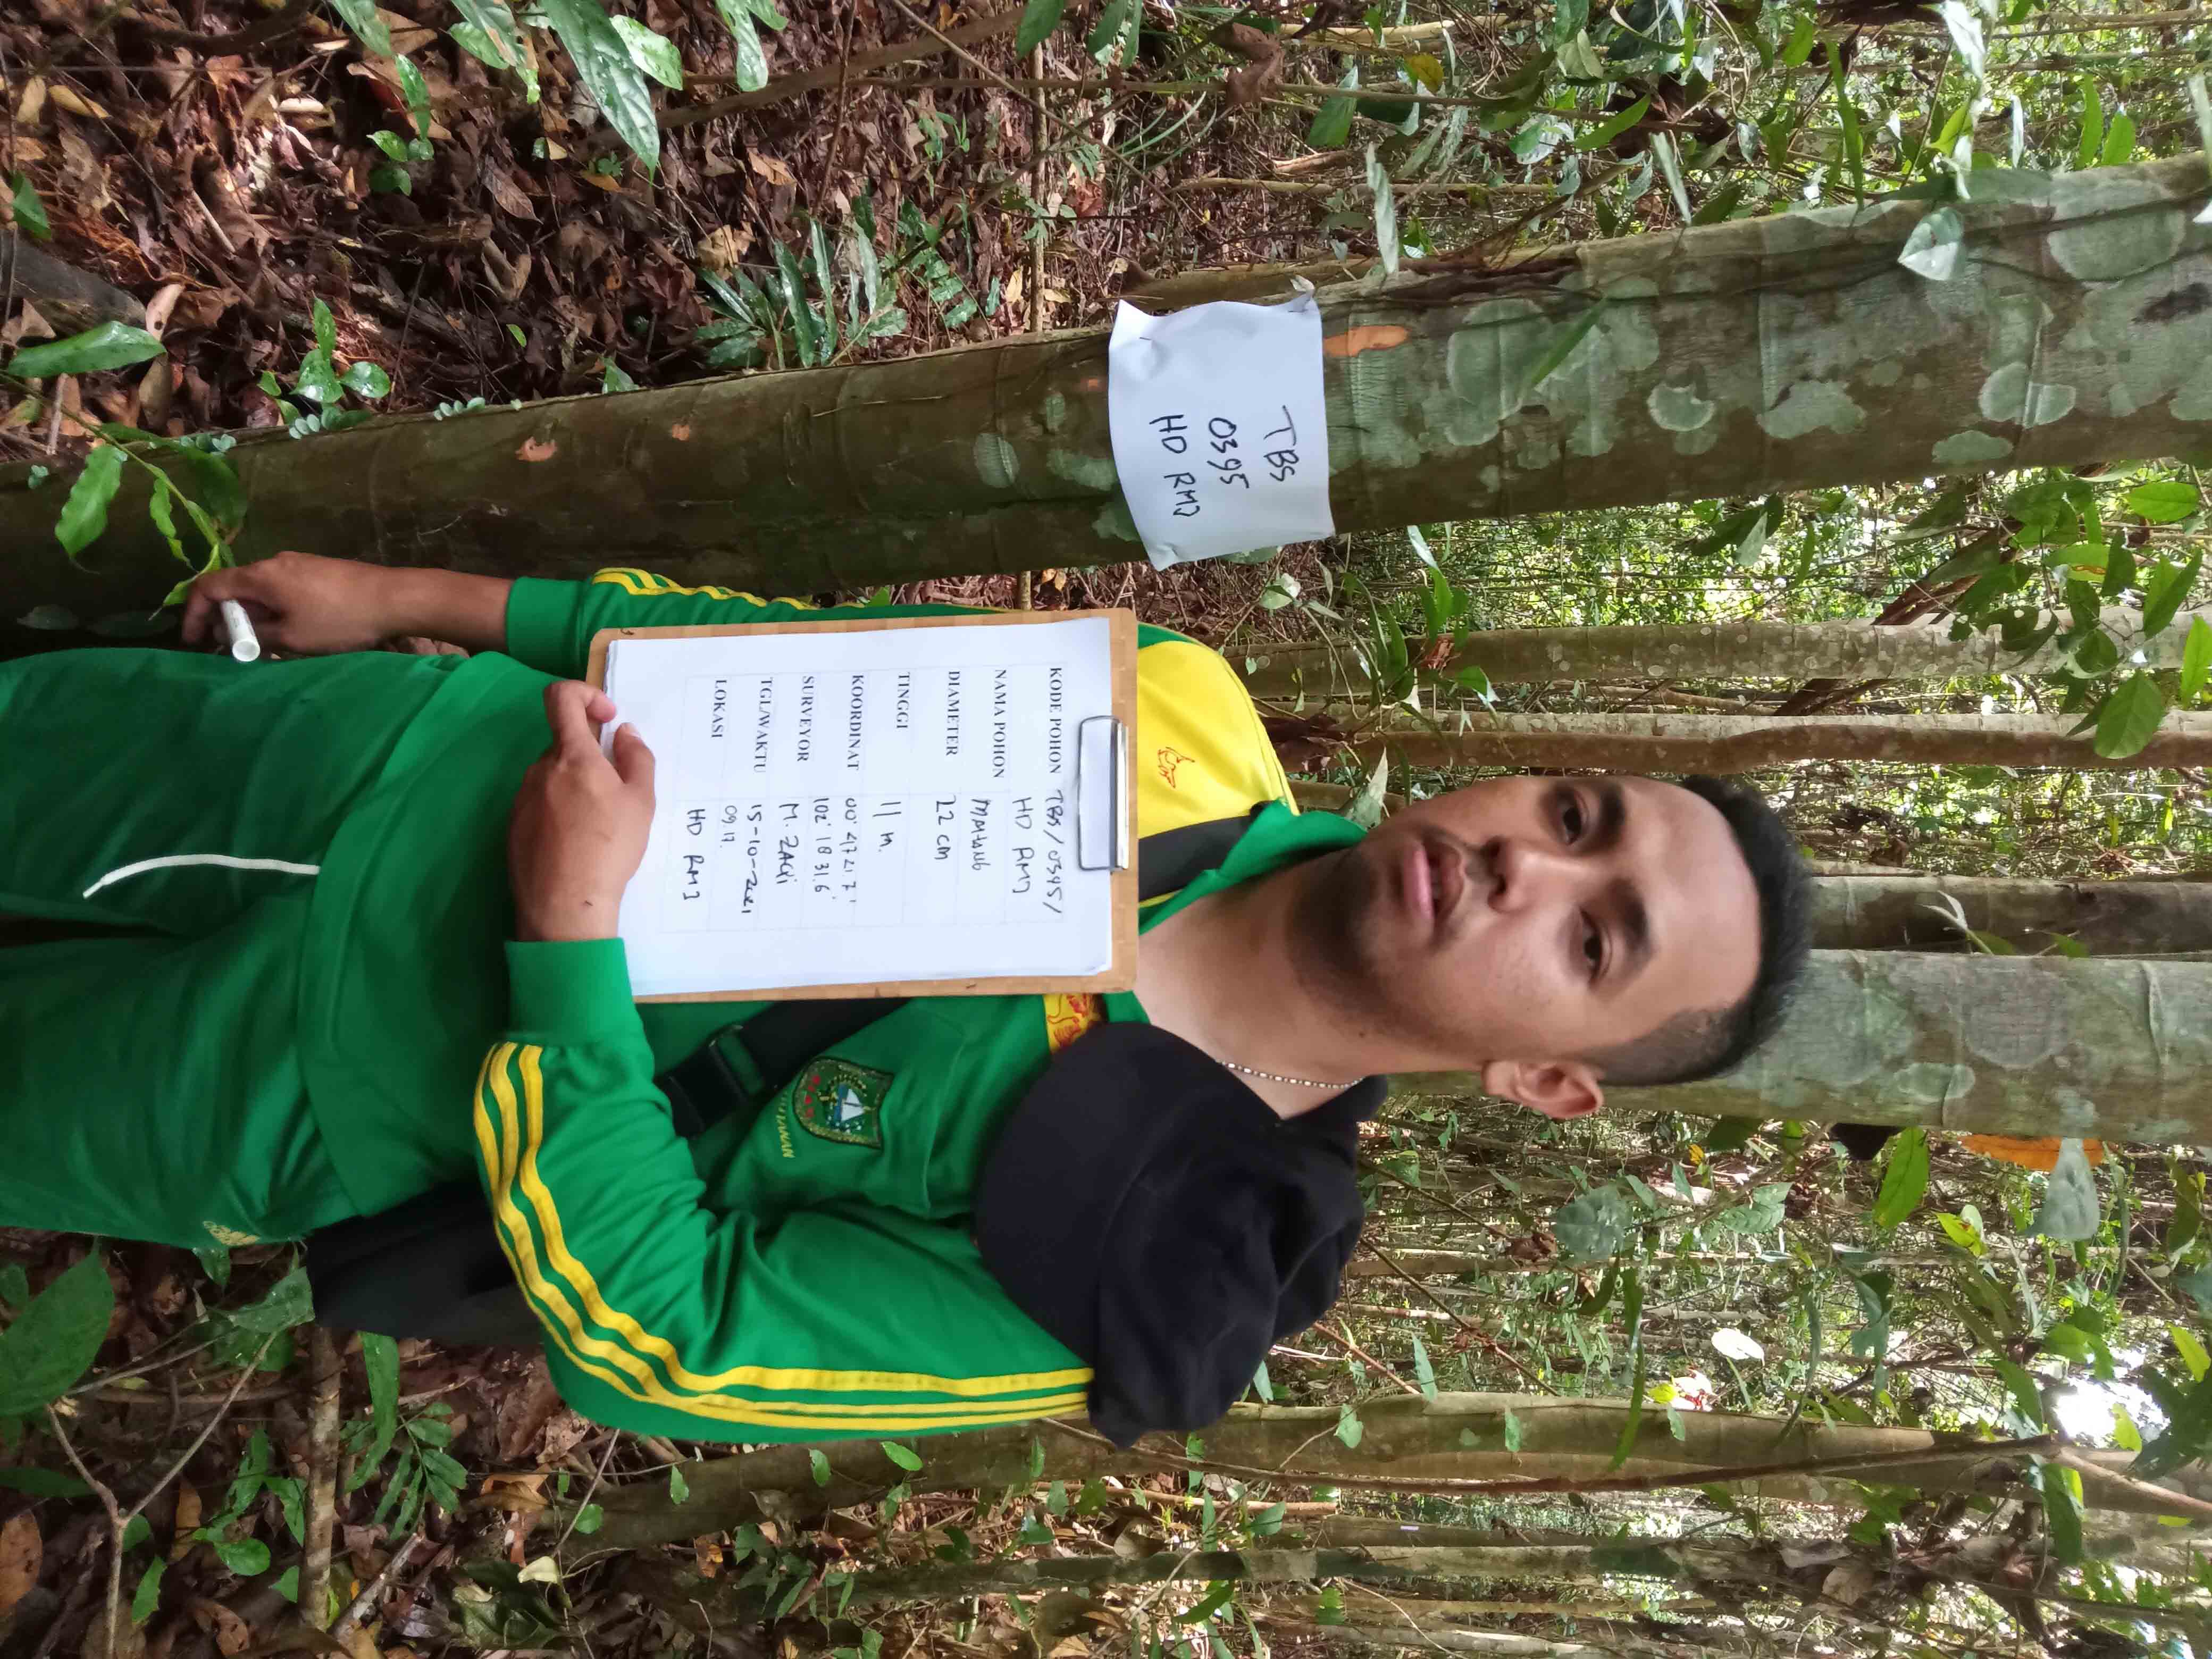 TBS
0395
HD RMJ
KODE POHON TBS/0395/
HD RMJ
NAMA POHON MAHANG
DIAMETER 22 cm
TINGGI 11 m.
KOORDINAT 00° 47'21.7"
102° 18 31.6'
SURVEYOR M. ZAKI
TGL/WAKTU 15-10-2021
09.17.
LOKASI HD RMJ